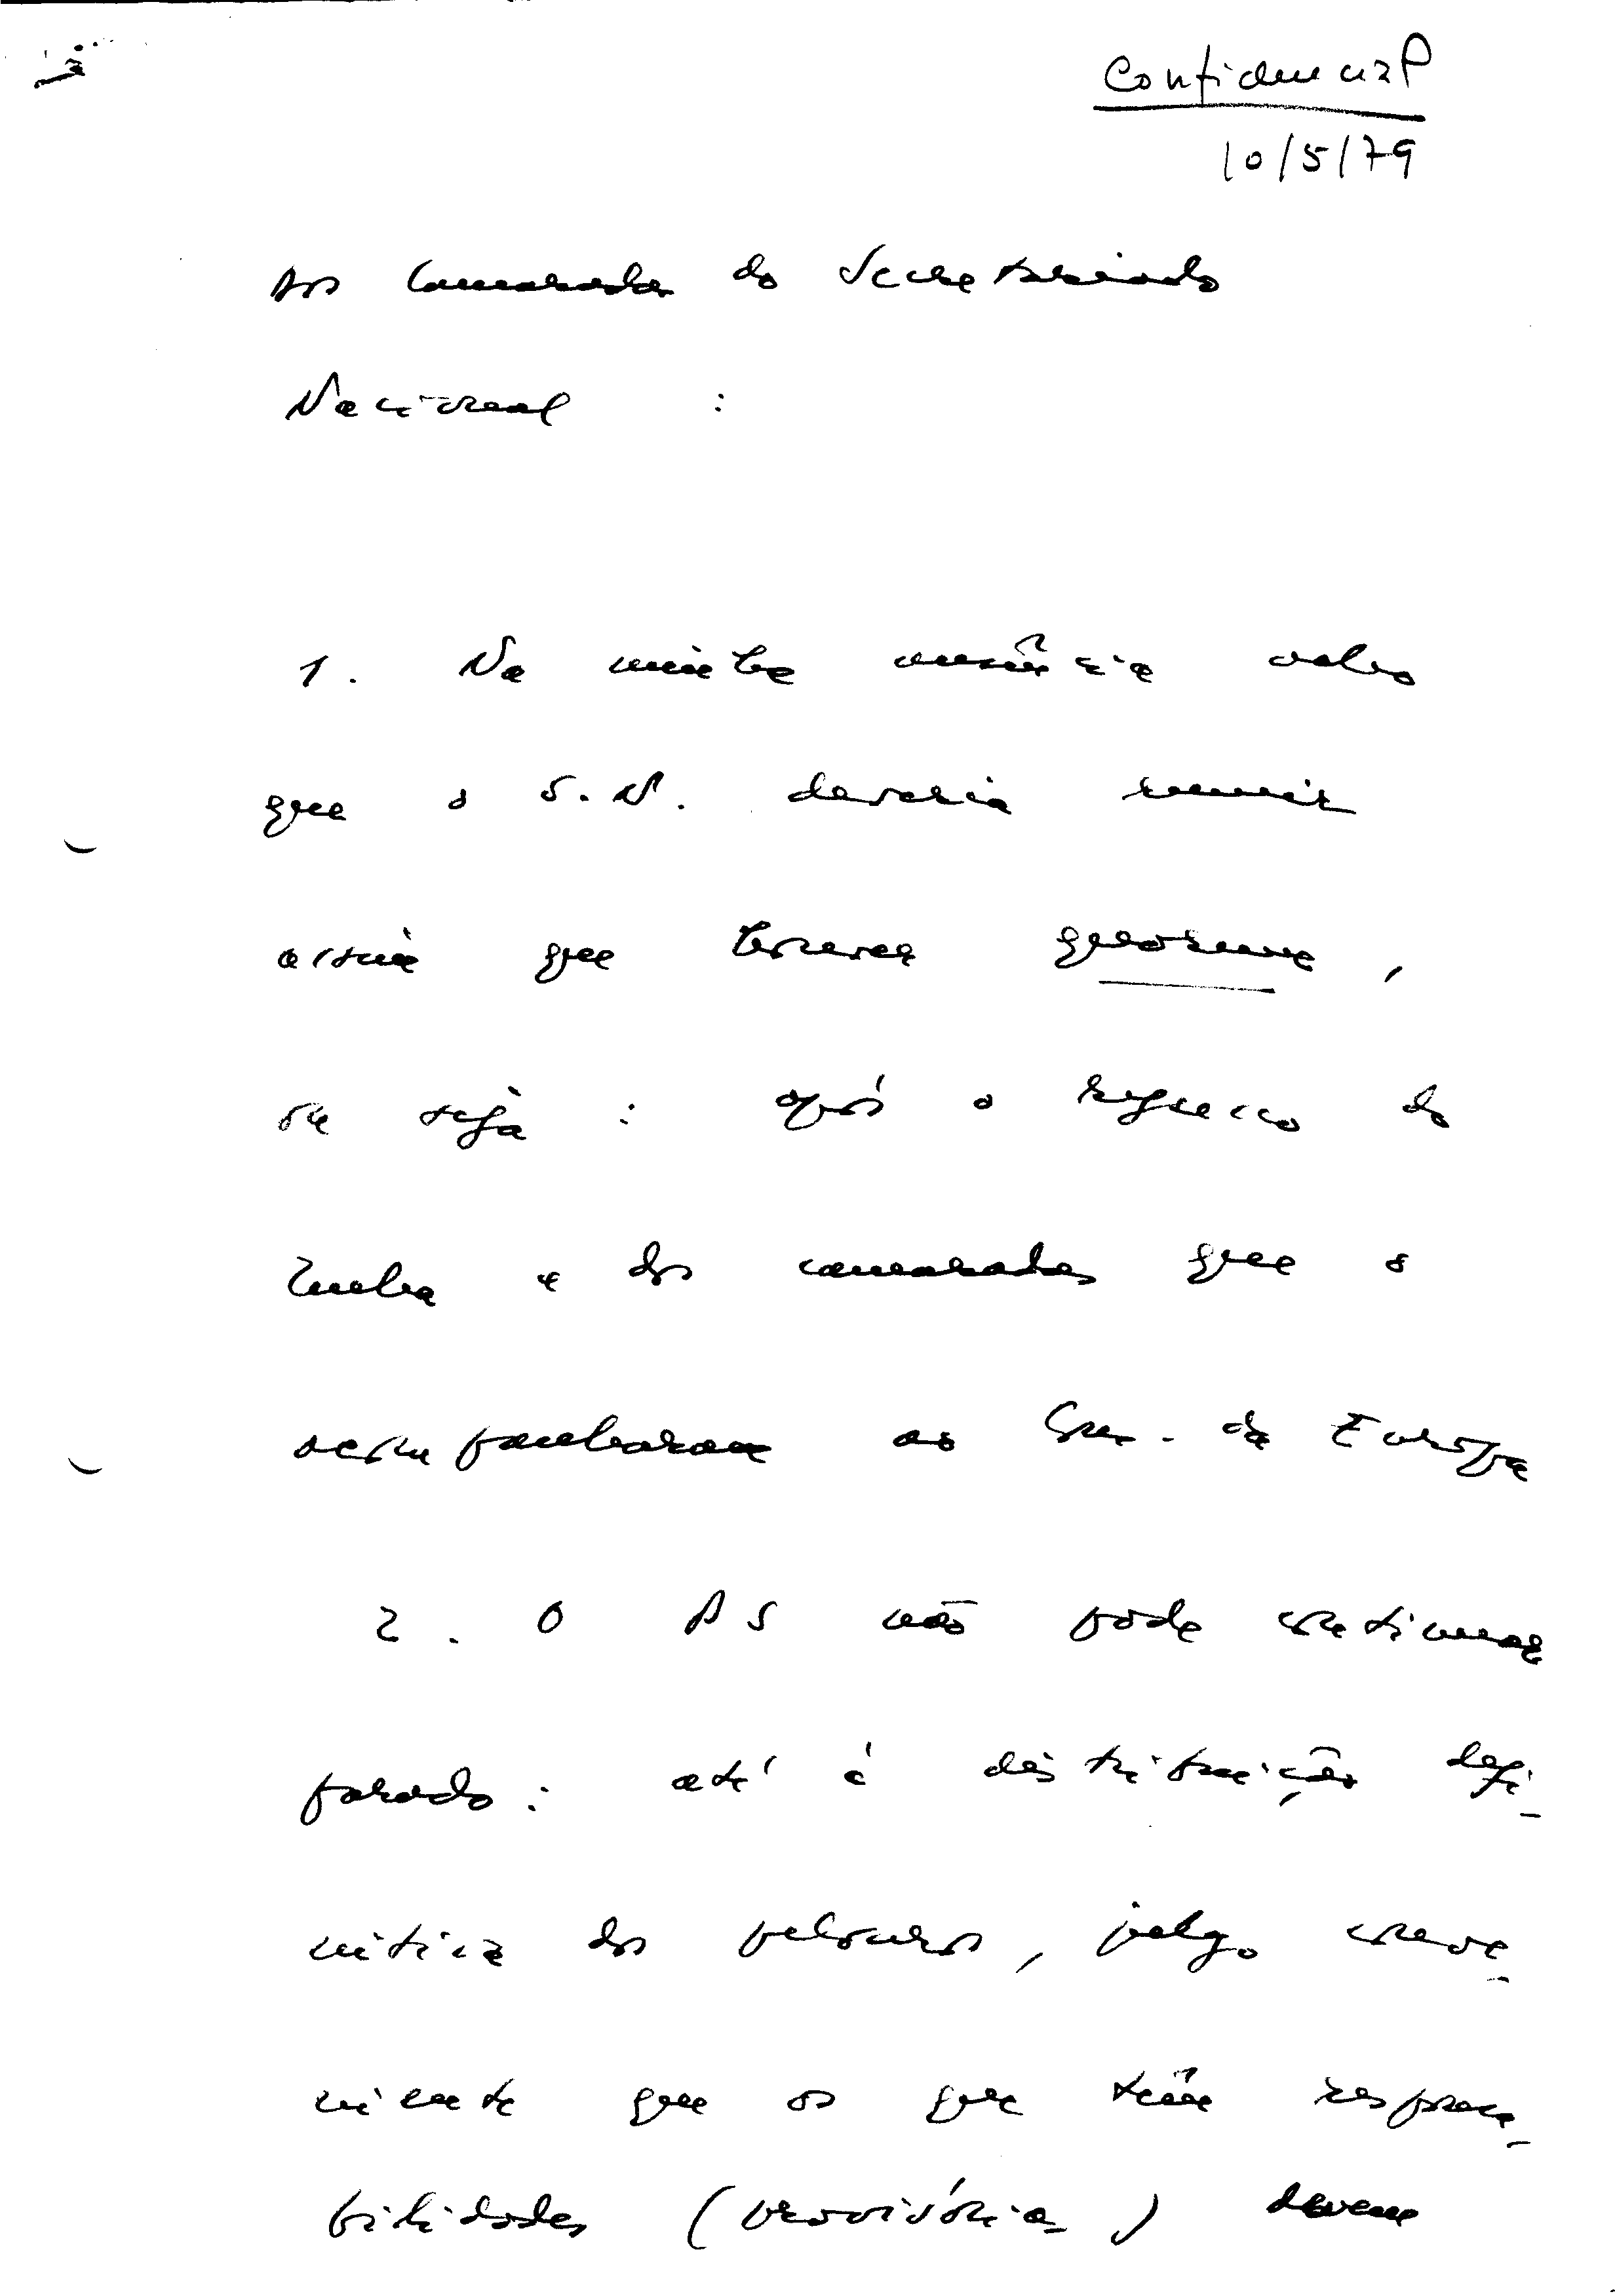 Confidencial
10/5/79
Aos Camaradas do Secretariado
Nacional :
1. Na minha ausência acho
que o S.N. deveria reunir
assim que houver quorum,
ou seja : após o regresso do
Zenha e dos camaradas que o
acompanharam ao Con. da Europa
2. O PS não pode continuar
parado : até à distribuição defi-
nitiva dos pelouros, julgo conve-
niente que os que têm responsa-
bilidades (provisórias) devem